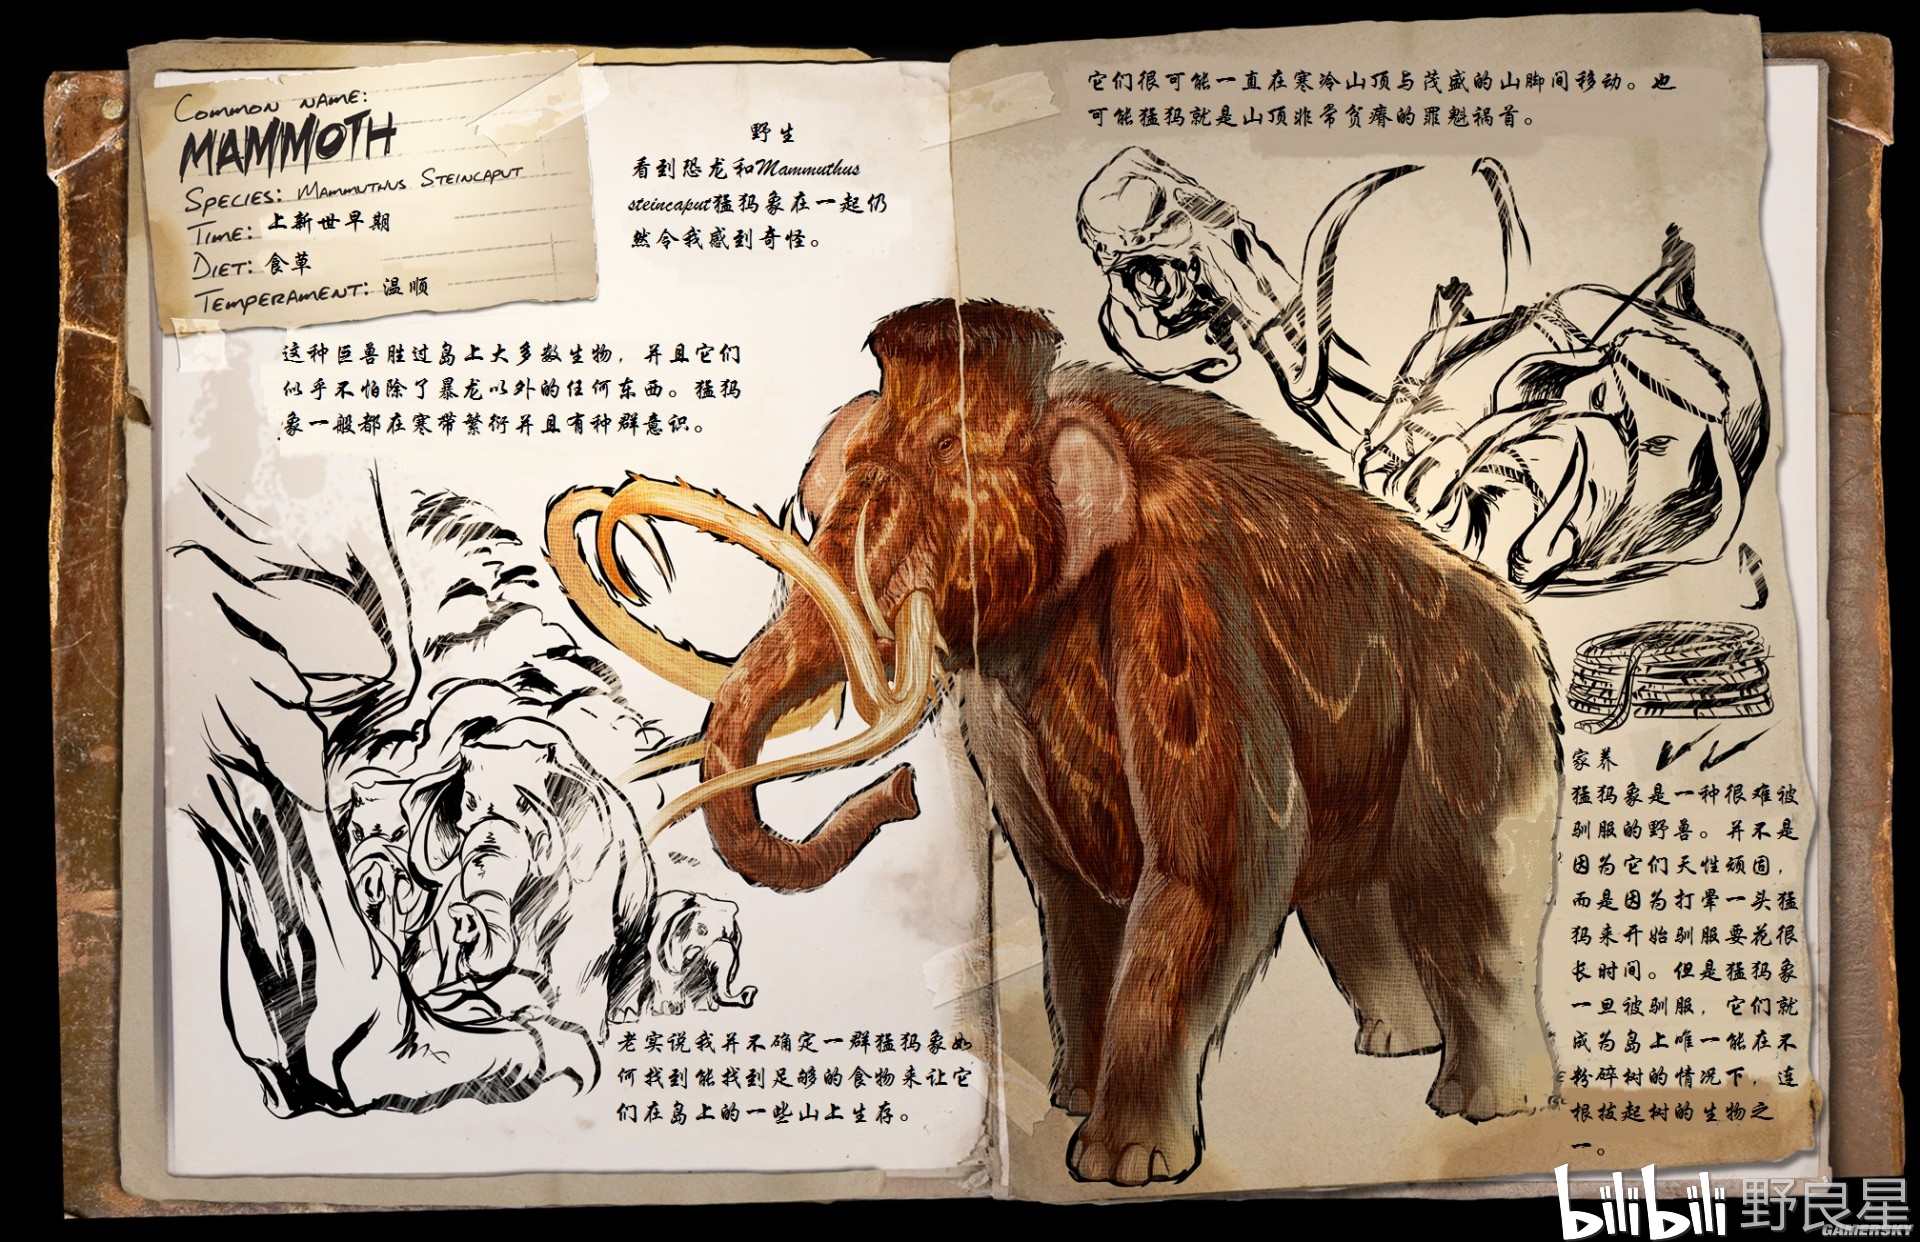 COMMON NAME:
MAMMOTH
SPECIES: MAMMUTHUS STEINCAPUT
TIME: 上新世早期
DIET: 食草
TEMPERAMENT: 温顺
野生
看到恐龙和Mammuthus
steincaput猛犸象在一起仍
然令我感到奇怪。
这种巨兽胜过岛上大多数生物，并且它们
似乎不怕除了暴龙以外的任何东西。猛犸
象一般都在寒带繁衍并且有种群意识。
老实说我并不确定一群猛犸象如
何找到能找到足够的食物来让它
们在岛上的一些山上生存。
它们很可能一直在寒冷山顶与茂盛的山脚间移动。也
可能猛犸就是山顶非常贫瘠的罪魁祸首。
家养
猛犸象是一种很难被
驯服的野兽。并不是
因为它们天性顽固，
而是因为打晕一头猛
犸来开始驯服要花很
长时间。但是猛犸象
一旦被驯服，它们就
成为岛上唯一能在不
粉碎树的情况下，连
根拔起树的生物之
一。
bilibili 野良星
GAMERSKY